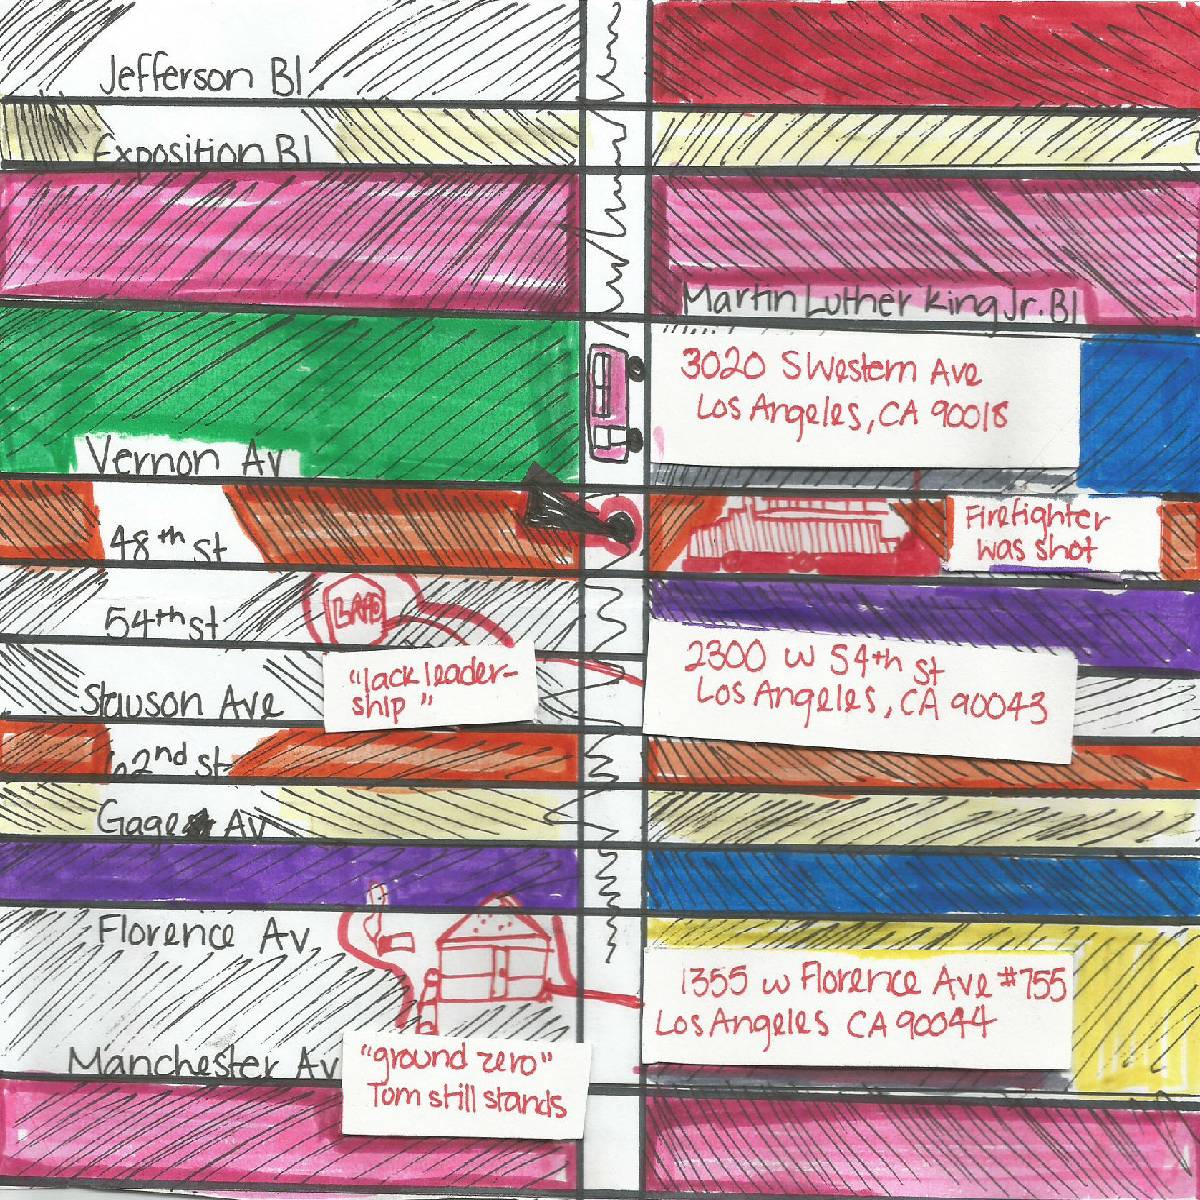 Jefferson Bl
Exposition Bl
Martin Luther King Jr. Bl
3020 S Western Ave
Los Angeles, CA 90018
Vernon Av
48th St
Firefighter
was shot
54th St
LAPD
"lack leader-
ship"
2300 W 54th St
Los Angeles, CA 90043
Slauson Ave
62nd St
Gage Av
Florence Av
1355 W Florence Ave #755
Los Angeles CA 90044
Manchester Av
"ground zero"
Tom still stands